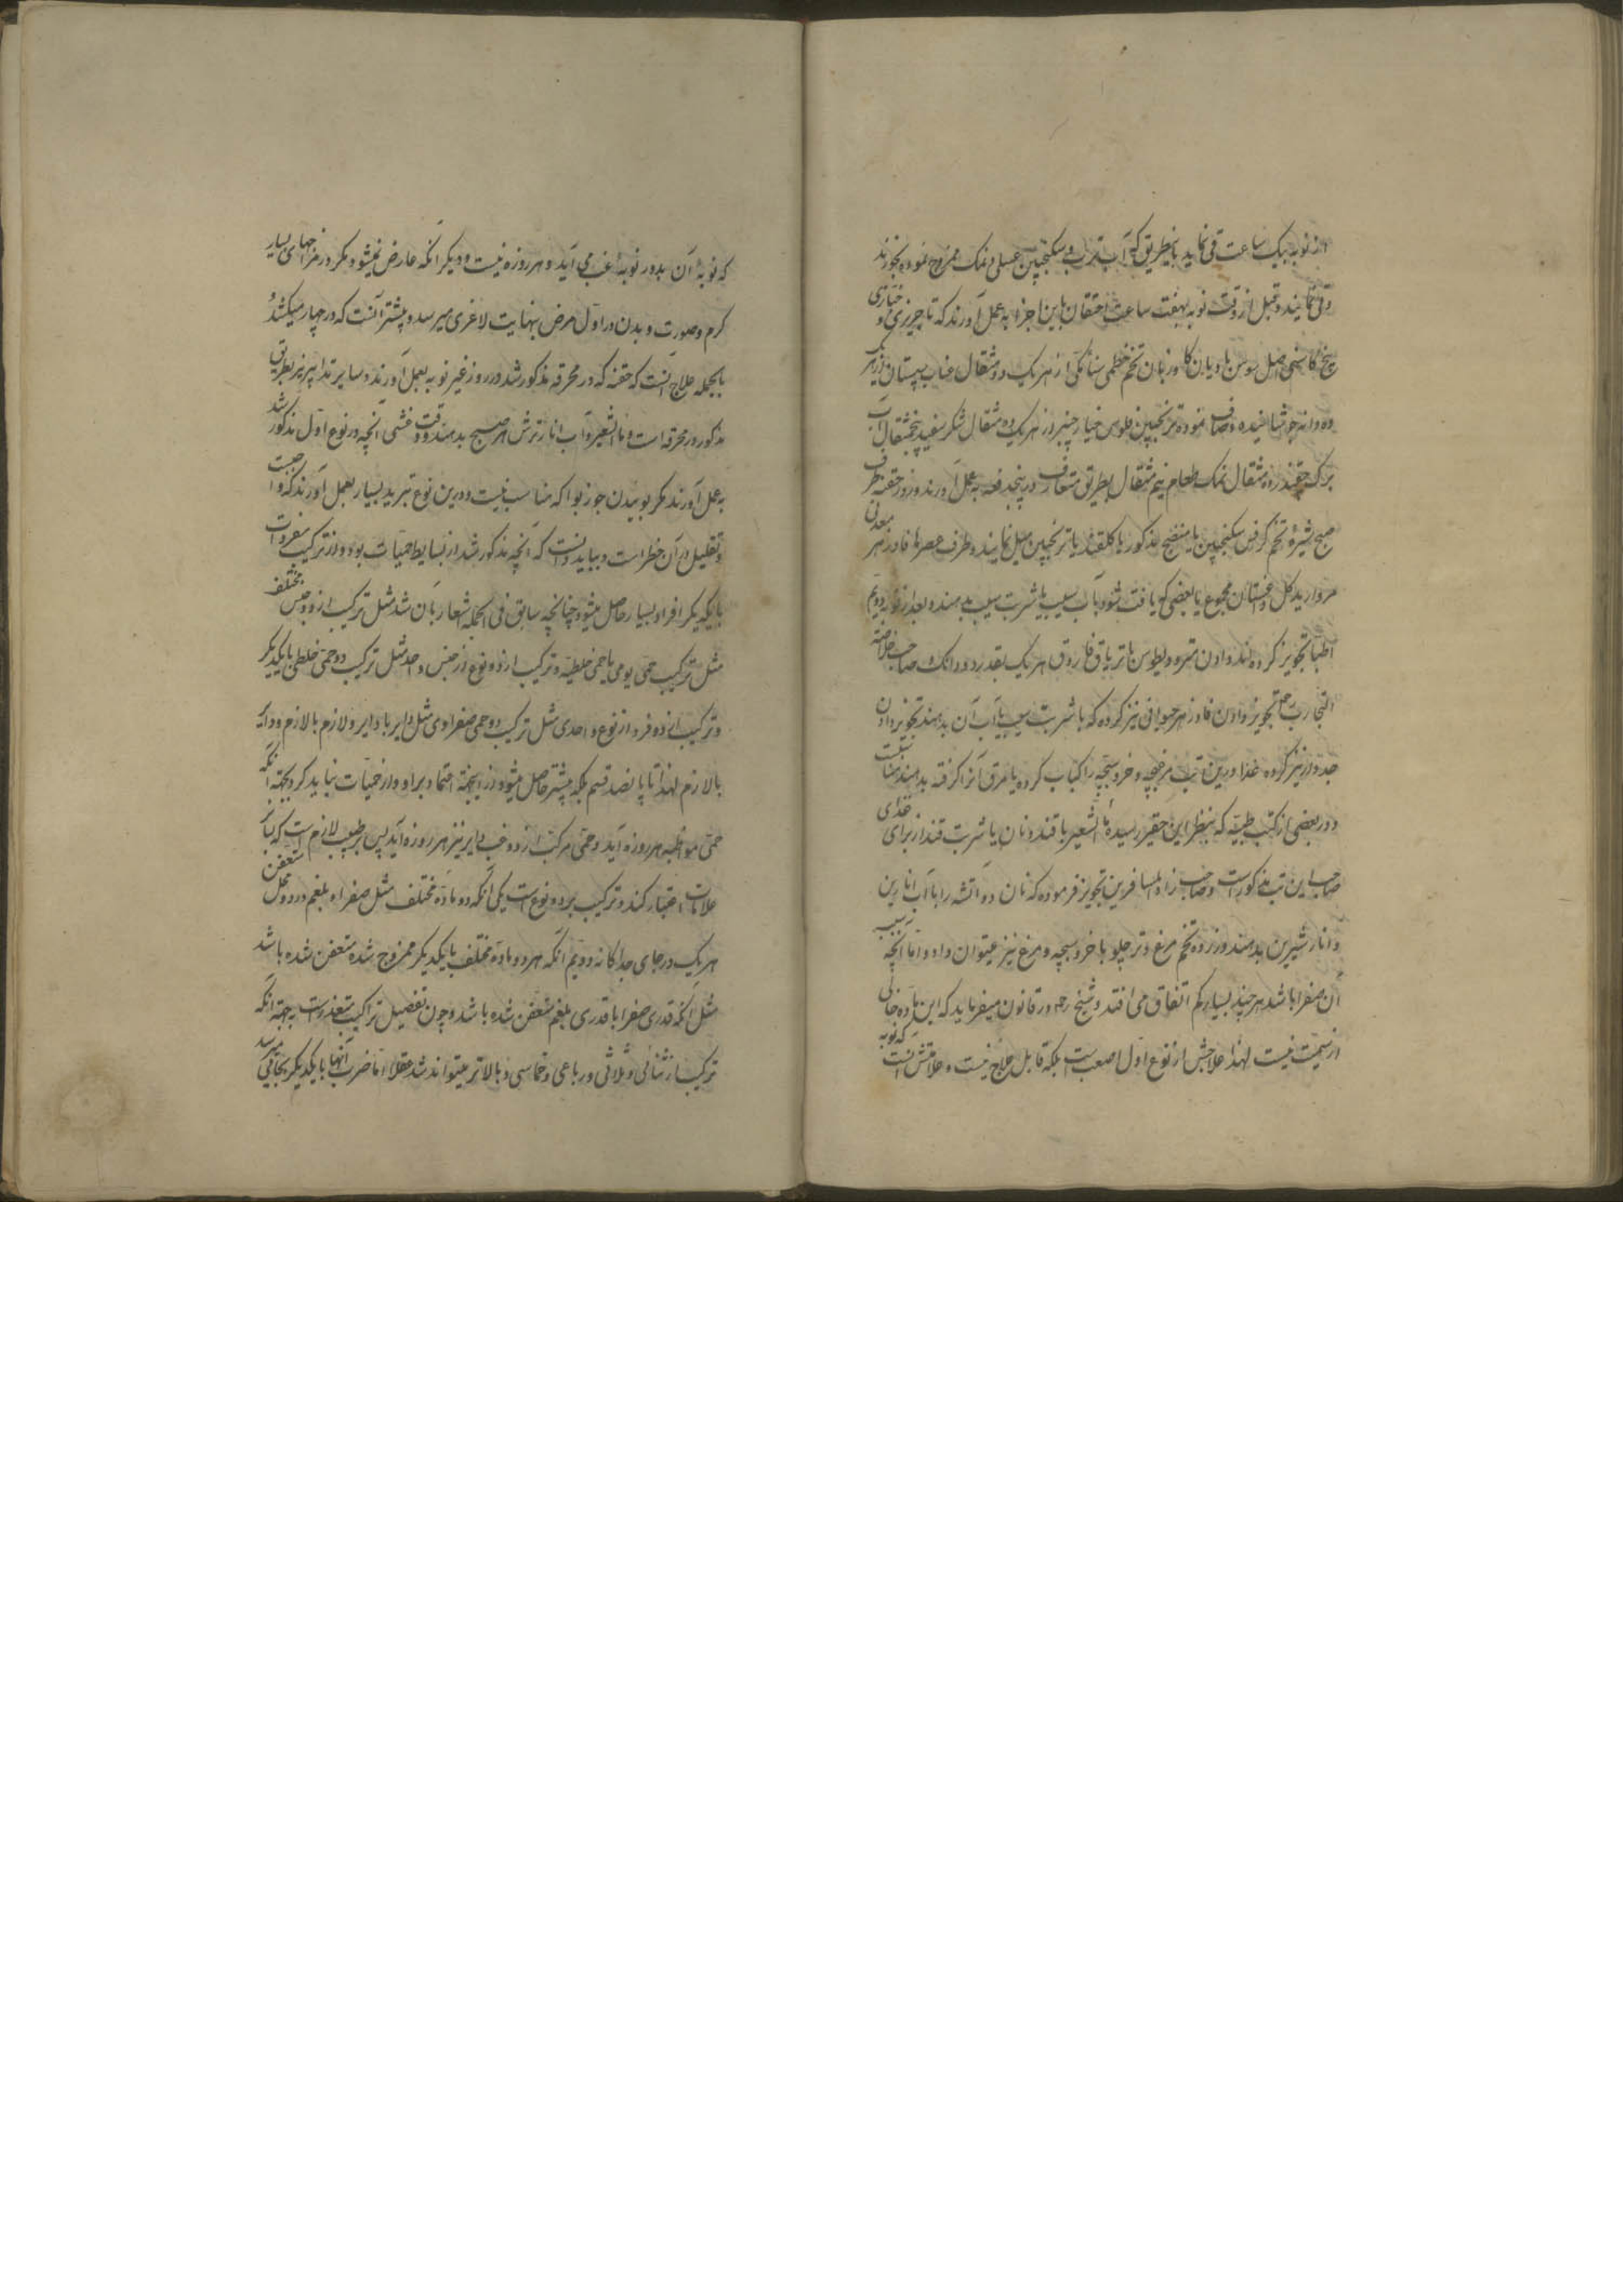 از نوبه بیک ساعت قی نماید باینطریق که آب ترب و سکنجبین عسلی و نمک ممزوج نموده بخورند
وقی نمایند و قبل از وقت نوبه بهفت ساعت احتقان باین اجزا به عمل آورند که تاجریزی و خبازی
بیخ کاسنی اصل سوس بادیان کاوزبان تخم خطمی سنامکی از هر یک دو مثقال عناب سپستان از هر یک
ده دانه جوشانیده و صاف نموده ترنجبین فلوس خیار چنبر از هر یک ده مثقال شکر سفید پنج مثقال آب
برک چقندر ده مثقال نمک طعام نیم مثقال بطریق متعارف در پنج دفعه به عمل آورند و روز حقنه طرف
صبح شیرهٔ تخم کرفس سکنجبین یا منضج مذکور با کلقند یا ترنجبین میل نمایند و طرف عصرها فادزهر معدنی
مروارید کل داغستان مجموع یا بعضی که یافت شود بآب سیب یا شربت سیب بدهند و بعد از نوبه دویم
اطبا تجویز کرده‌اند دادن مثرودیطوس با تریاق فاروق هر یک بقدر دو دانک و صاحب خلاصة
التجارب تجویز دادن فادزهر حیوانی نیز کرده که با شربت سیب یا آب آن بدهند و تجویز دادن
جدوار نیز کرده غذا درین تب مرغچه و خروسچه را کباب کرده یا مرق آنرا کرفته بدهند مناسبست
و در بعضی از کتب طبیه که بنظر این حقیر رسیده ماء الشعیر با قند و نان با شربت قند از برای غذای
صاحب این تب مذکور است و صاحب زاد المسافرین تجویز فرموده که نان دو آتشه را با آب انارین
و انار شیرین بدهند و زرده تخم مرغ و تر چلو با خروسچه و مرغ نیز میتوان داد و اما آنچه بسبب
آن صفرا باشد هر چند بسیار کم اتفاق می افتد و شیخ رح در قانون میفرماید که این ماده خالی
از سمیت نیست لهذا علاجش از نوع اول اصعب است بلکه قابل علاج نیست و علامتش آنست که نوبه
که نوبهٔ آن بدور نوبهٔ غب می آید و هر روزه نیست و دیکر آنکه عارض نمیشود مکر در مزاجهای بسیار
کرم و صورت و بدن در اول مرض بنهایت لاغری میرسد و پیشتر آنست که در چهار میکشد و
بالجمله علاج آنست که حقنه که در محرقه مذکور شد در روز غیر نوبه بعمل آورند و سایر تدابیر نیز بطریق
مذکور در محرقه است و ماء الشعیر و آب انار ترش هر صبح بدهند و وقت غشی آنچه در نوع اول مذکور شد
به عمل آورند مکر بوییدن جوز بوا که مناسب نیست و درین نوع تبرید بسیار بعمل آورند که واجبست
و تقلیل در آن خطر است و بباید دانست که آنچه مذکور شد از بسایط حمیات بود و از ترکیب مفردات
با یکدیکر افراد بسیار حاصل میشود چنانچه سابق فی الجمله اشعار بآن شد مثل ترکیب از دو جنس مختلف
مثل ترکیب حمی یومی با حمی خلطیه و ترکیب از دو نوع از جنس واحد مثل ترکیب دو حمی خلطی با یکدیکر
و ترکیب از دو فرد از نوع واحدی مثل ترکیب دو حمی صفراوی مثل دایر با دایر و لازم با لازم و دایر
با لازم لهذا تا پانصد قسم بلکه بیشتر حاصل میشود ازینجهة اعتماد بر ادوار حمیات نباید کرد بجهة آنکه
حمی مواظبه هر روزه آید و حمی مرکب از دو غب دایر نیز هر روزه آید پس بر طبیب لازم است که بناء
علامات اعتبار کند و ترکیب بر دو نوع است یکی آنکه دو ماده مختلف مثل صفرا و بلغم در دو محل متعفن
هر یک در جای جداکانه و دویم آنکه هر دو ماده مختلف با یکدیکر ممزوج شده متعفن شده باشد
مثل آنکه قدری صفرا با قدری بلغم متعفن شده باشد و چون تفصیل تراکیب متعذر است به جهة آنکه
ترکیب از ثنائی و ثلاثی و رباعی و خماسی و بالاتر میتواند شد عقلا اما ضرب آنها با یکدیکر بجائی میرسد